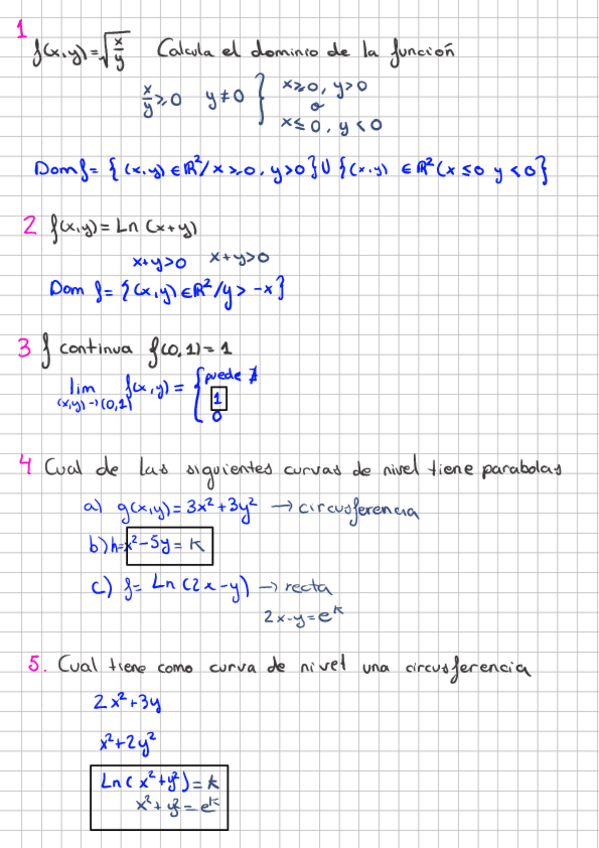 1
f(x,y)=√x/y Calcula el dominio de la función
x/y ≥0 y≠0 } x≥0, y>0
o
x≤0, y<0
Dom f= {(x,y)∈ℝ²/x≥0, y>0}∪{(x,y) ∈ℝ²(x≤0 y<0}
2 f(x,y)=Ln(x+y)
x+y>0 x+y>0
Dom f={(x,y)∈ℝ²/y>-x}
3 f continua f(0,1)=1
lim (x,y)→(0,1) f(x,y)= { puede ∄
1
0
4 Cual de las siguientes curvas de nivel tiene parabolas
a) g(x,y)=3x²+3y² → circusferencia
b) h=x²-5y=K
c) f= Ln(2x-y) → recta
2x-y=eᵏ
5. Cual tiene como curva de nivel una circusferencia
2x²+3y
x²+2y²
Ln(x²+y²)=k
x²+y²=eᵏ